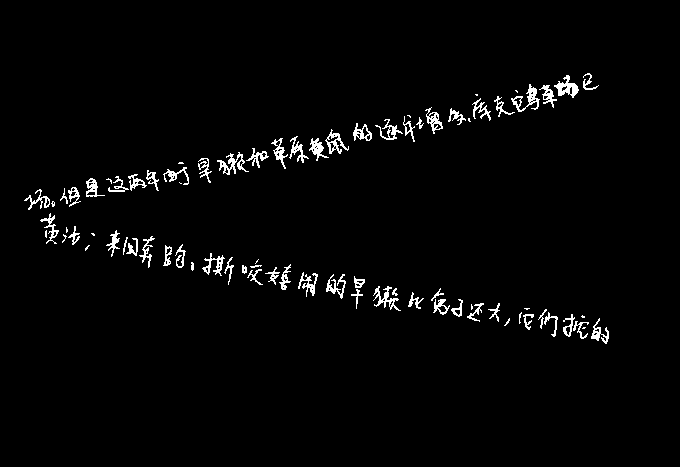 场。但是这两年由于旱獭和草原黄鼠的逐年增多,库克它乌草场已
黄沽;来回奔跑。撕咬嬉闹的旱獭比兔子还大,它们挖的